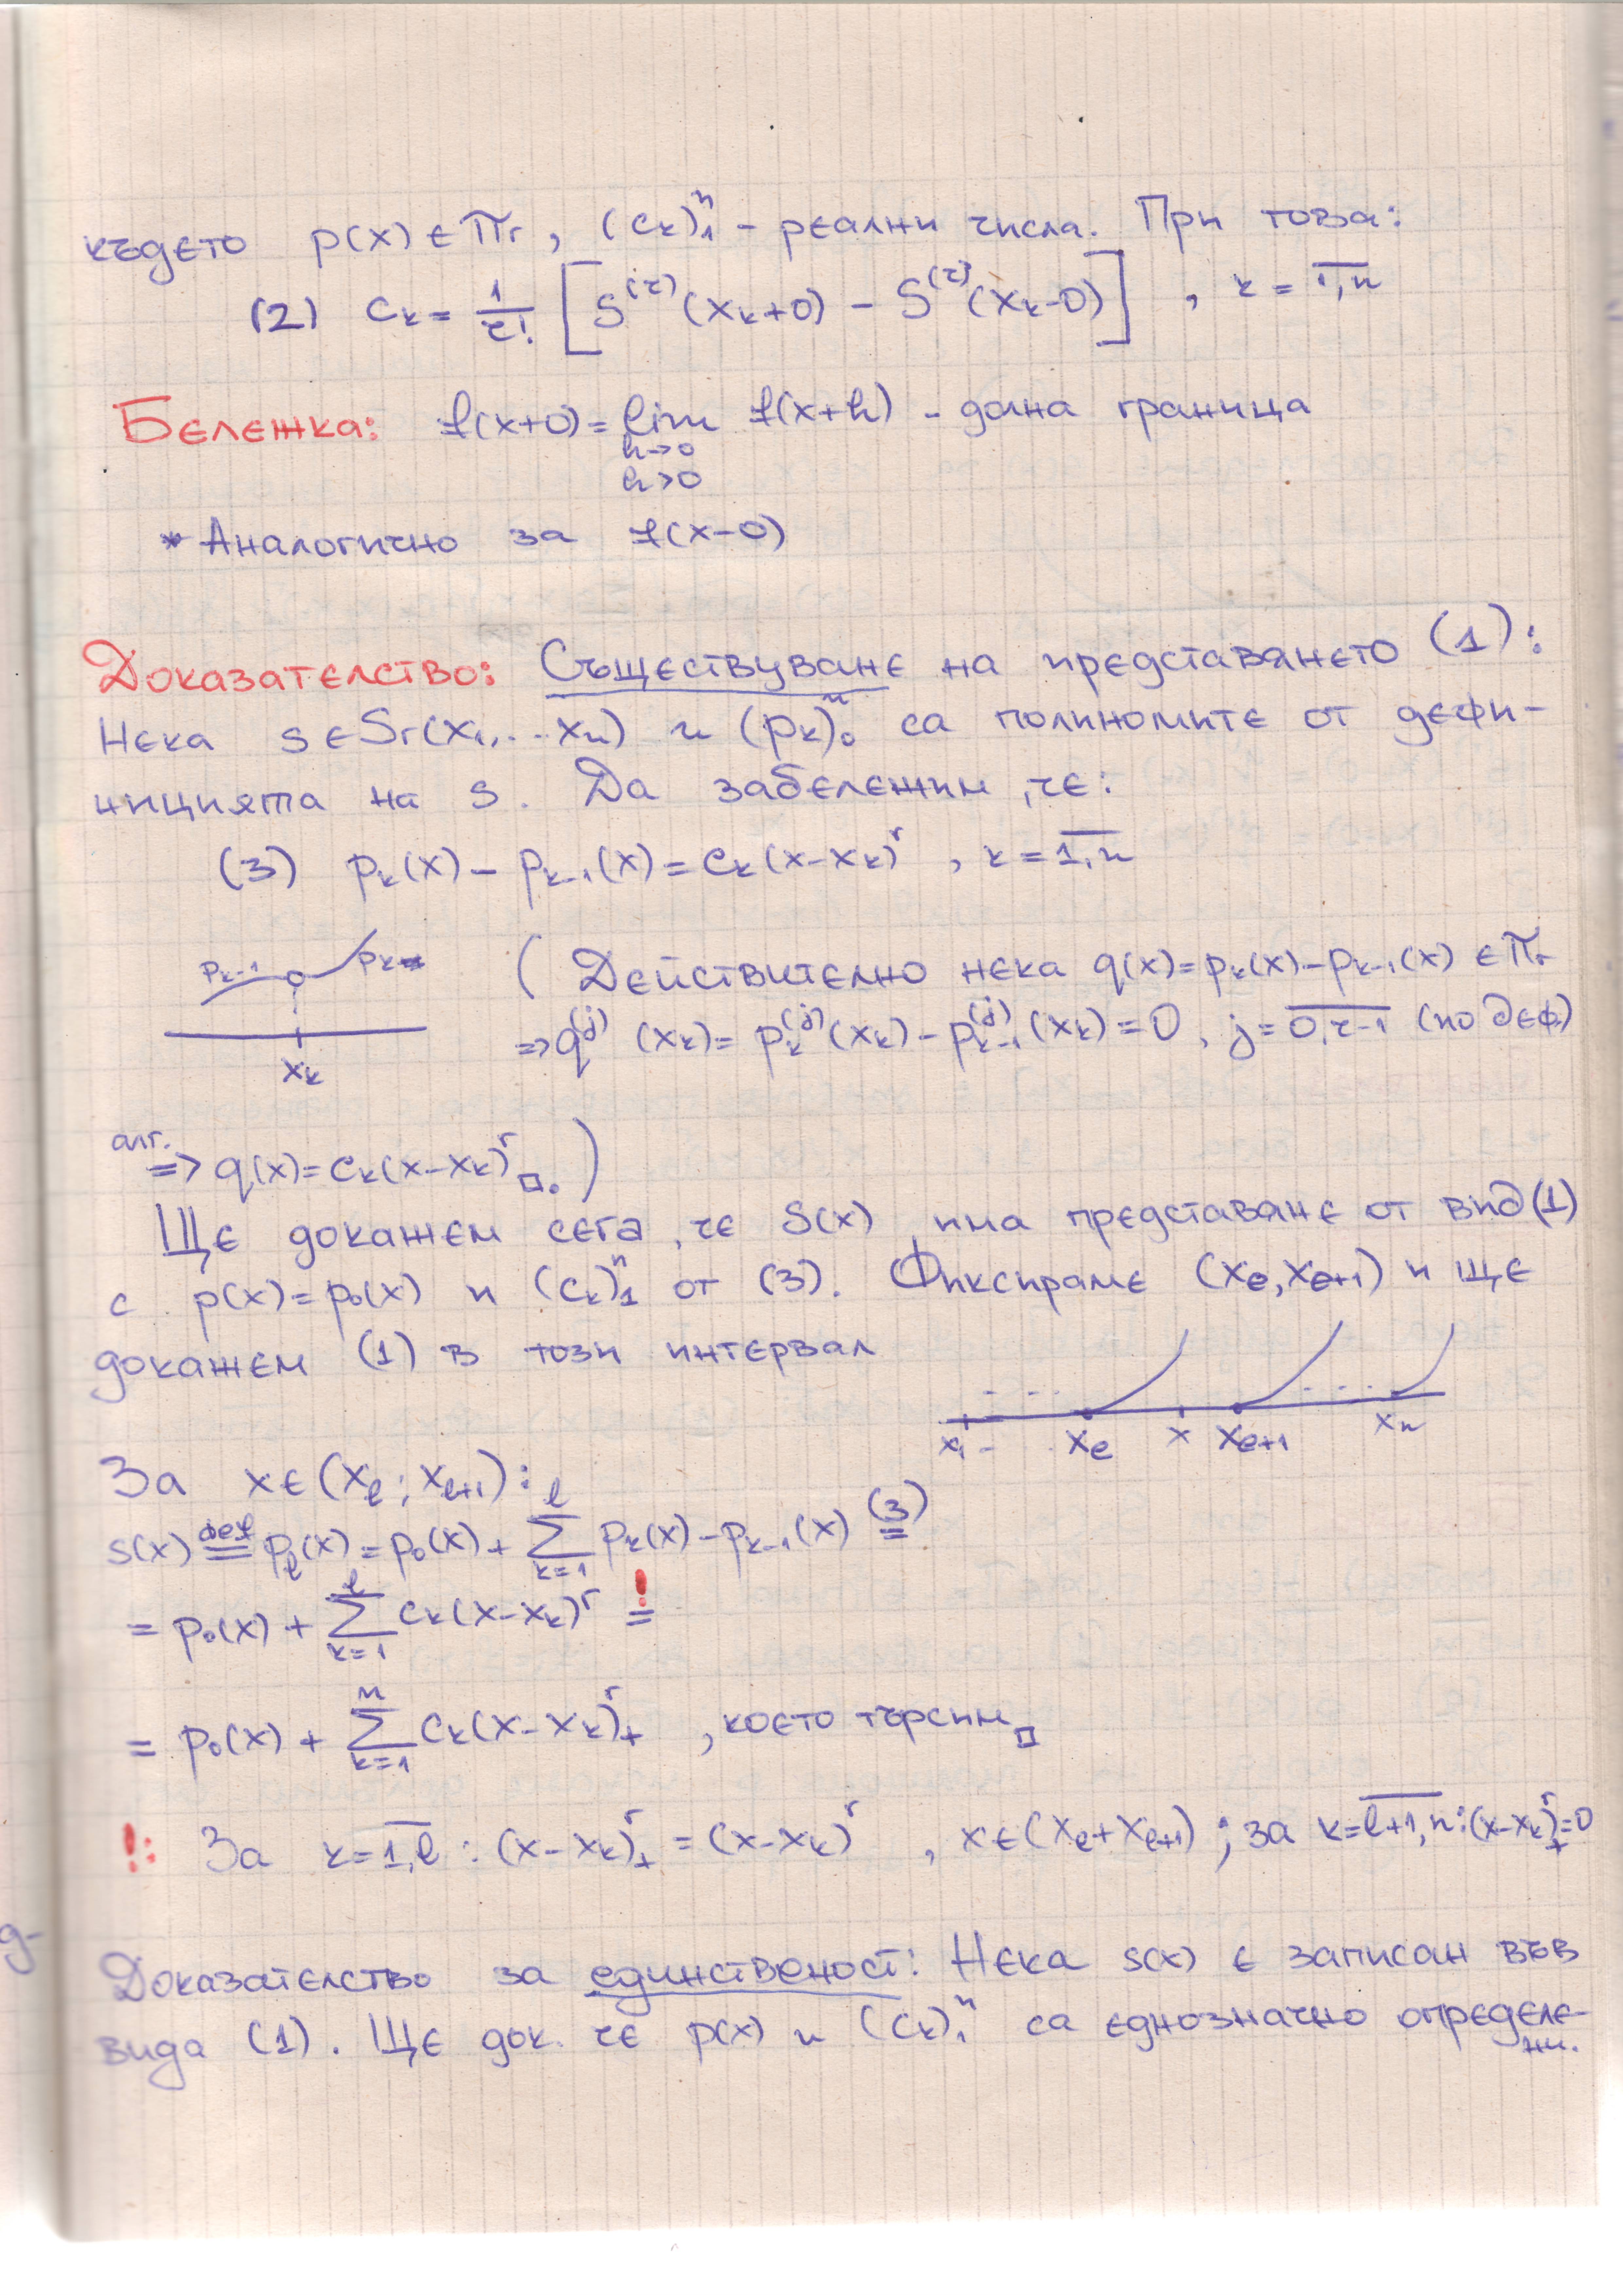 където p(x) ∈ πr, (ck)₁ⁿ - реални числа. При това:
(2) ck = 1/r! [S^(r)(xk+0) - S^(r)(xk-0)] , k = 1,n
Бележка: f(x+0) = lim f(x+h) - долна граница
h→0
h>0
* Аналогично за f(x-0)
Доказателство: Съществуване на представянето (1):
Нека s ∈ Sr(x₁,...xn) и (pk)₀ⁿ са полиномите от дефи-
ницията на s. Да забележим, че:
(3) pk(x) - pk-1(x) = ck(x-xk)^r , k = 1,n
pk-1 pk
xk
( Действително нека q(x) = pk(x) - pk-1(x) ∈ πr
=> q^(j)(xk) = pk^(j)(xk) - pk-1^(j)(xk) = 0, j = 0,r-1 (по деф.)
алг.
=> q(x) = ck(x-xk)^r □. )
Ще докажем сега, че S(x) има представяне от вид (1)
с p(x) = p₀(x) и (ck)₁ⁿ от (3). Фиксираме (xl, xl+1) и ще
докажем (1) в този интервал
x₁ - xl x xl+1 xn
За x ∈ (xl ; xl+1):
s(x) =деф= pl(x) = p₀(x) + Σ_{k=1}^{l} pk(x) - pk-1(x) =(3)=
= p₀(x) + Σ_{k=1}^{l} ck(x-xk)^r =!
= p₀(x) + Σ_{k=1}^{n} ck(x-xk)₊^r , което търсим □
!: За k = 1,l : (x-xk)₊^r = (x-xk)^r , x ∈ (xl + xl+1) ; за k = l+1,n : (x-xk)₊^r = 0
Доказателство за единственост: Нека s(x) е записан във
вида (1). Ще док. че p(x) и (ck)₁ⁿ са еднозначно определе-
ни.